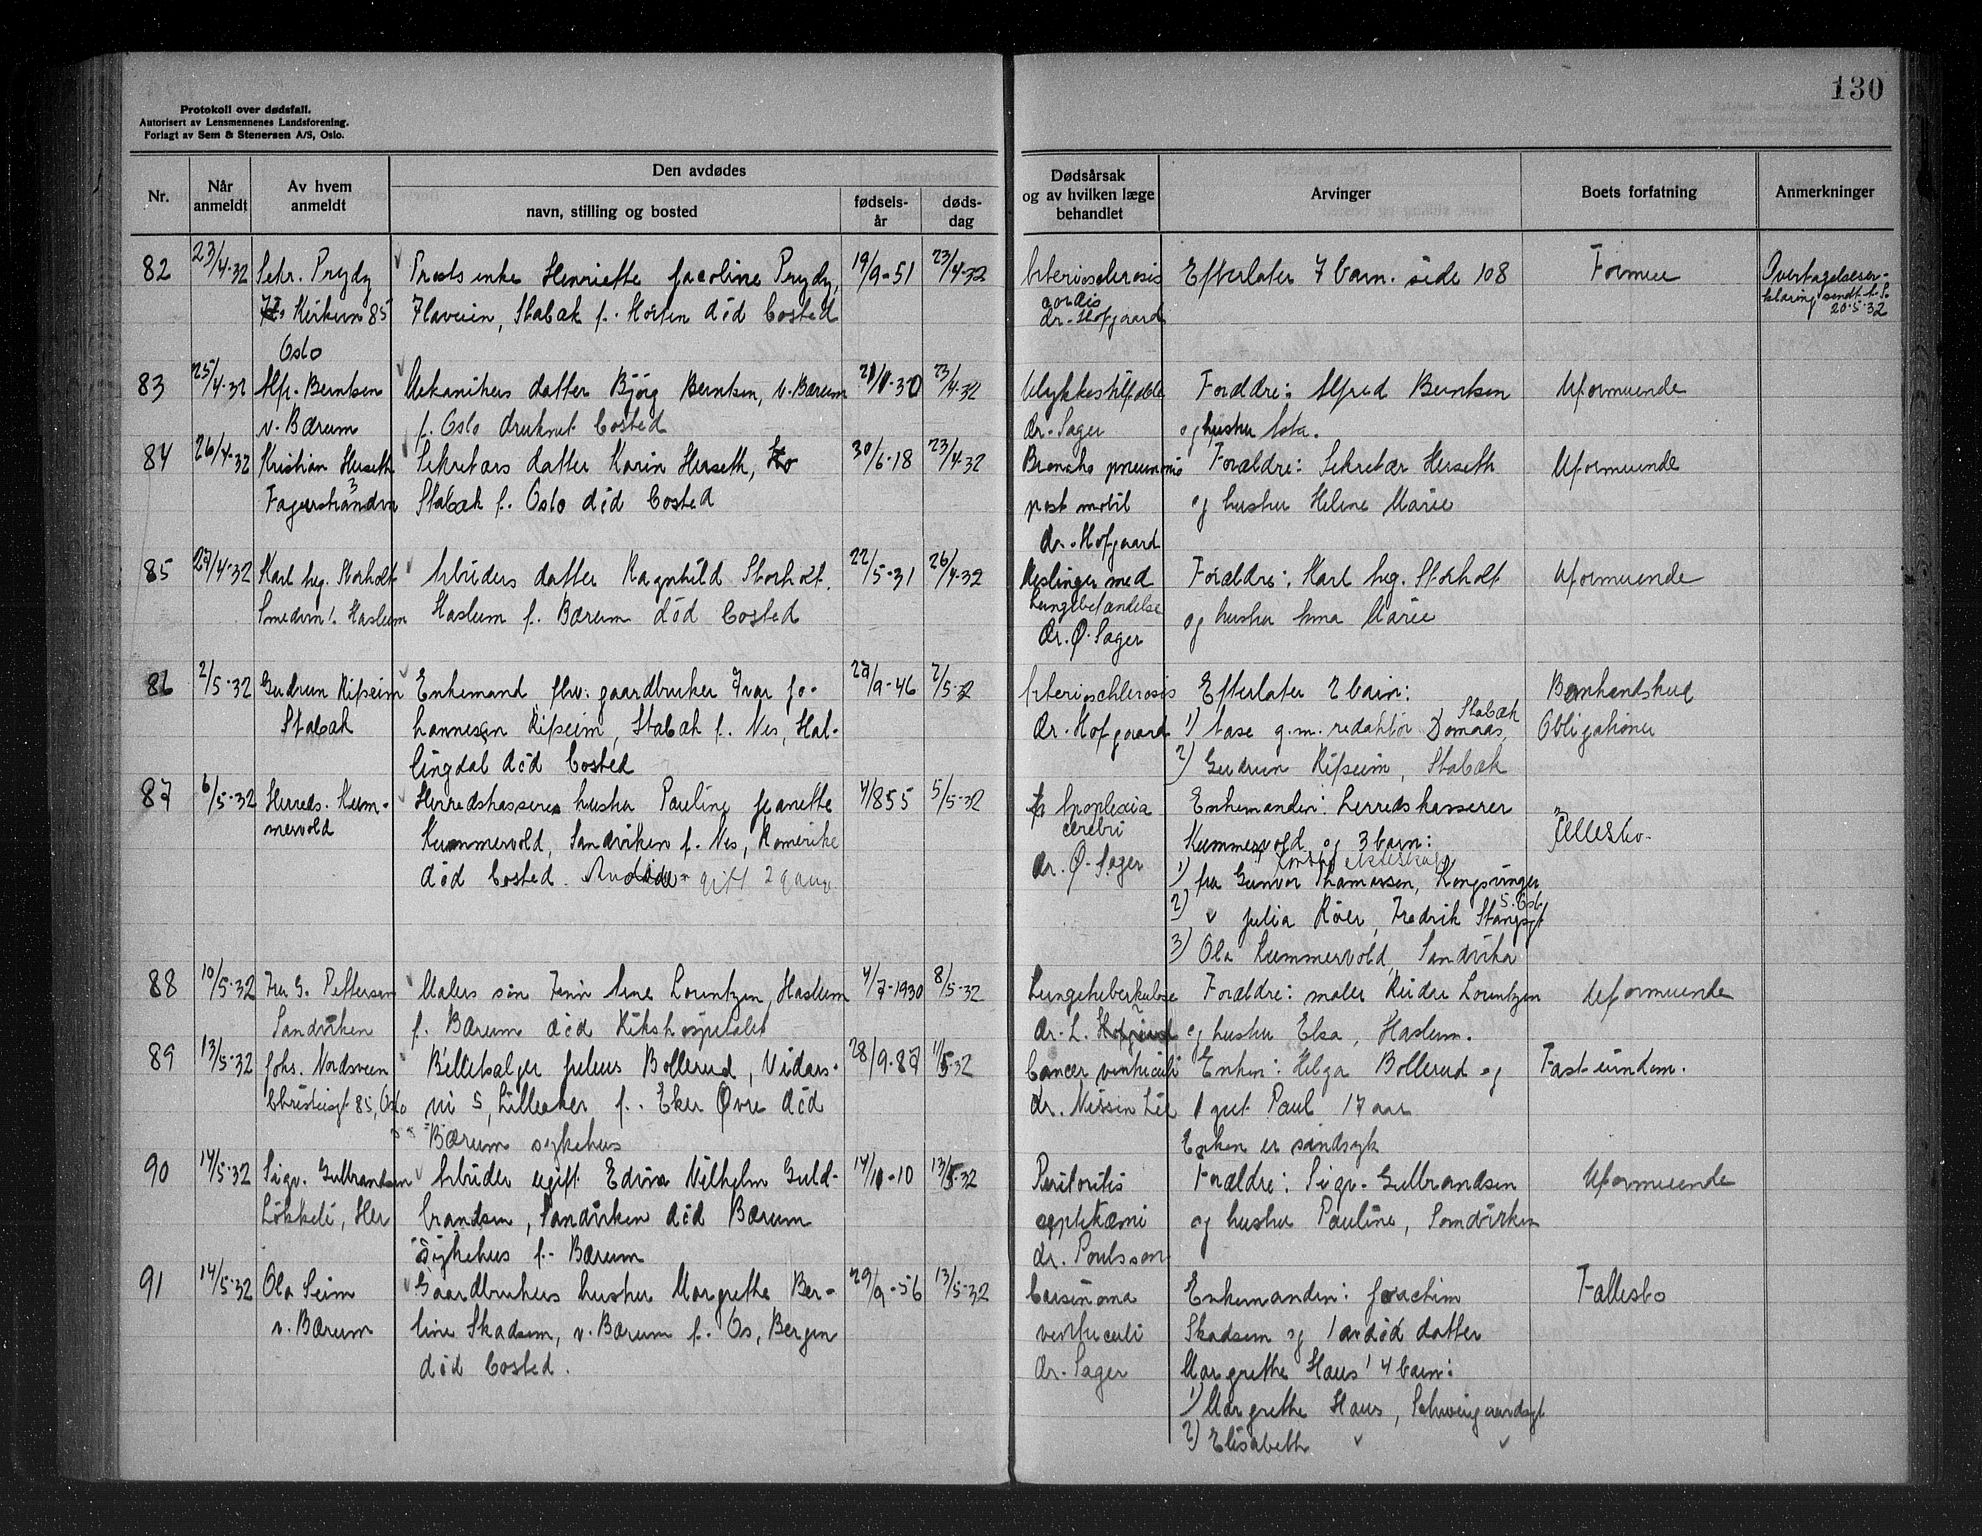 Protokoll over dødsfall.
Autorisert av Lensmennenes Landsforening.
Forlagt av Sem & Stenersen A/S, Oslo.
130
Nr.
Når anmeldt
Av hvem anmeldt
Den avdødes
navn, stilling og bosted
fødsels-
år
døds-
dag
Dødsårsak
og av hvilken læge
behandlet
Arvinger
Boets forfatning
Anmerkninger
82
23/4-32
Sekr. Prydz
Kirkevn 85
Oslo
Prosts enke Henriette Jacoline Prydz,
Stabæk f. Horten död bosted
19/9-51
23/4-32
Arteriosclerosis
cordis
dr. Hofgaard
Efterlater 7 barn. side 108
Formue
Overtagelseser-
klæring sendt
20-5-32
83
25/4-32
Alf. Berntsen
v. Bærum
Mekanikers datter Bjørg Berntsen, v. Bærum
f. Oslo druknet bosted
23/4-32
Ulykkestilfælde
dr. Sager
Forældre: Alfred Berntsen
og hustru Asta.
Uformuende
84
26/4-32
Kristian Herseth
Fagerstrandvn 3
Sekretærs datter Karin Herseth,
Stabæk f. Oslo död bosted
30/6-18
23/4-32
Broncho pneumoni
post morbil
dr. Hofgaard
Forældre: Sekretær Herseth
og hustru Helene Marie
Uformuende
85
27/4-32
Karl Ing. Storholt
Smedvn 1. Haslum
Arbeiders datter Ragnhild Storholt.
Haslum f. Bærum död bosted
22/5-31
26/4-32
Meslinger med
Lungebetændelse
dr. Ø. Sager
Forældre: Karl Ing. Storholt
og hustru Anna Marie
Uformuende
86
2/5-32
Gudrun Ripseim
Stabæk
Enkemand fhv. gaardbruker Ivar Jo-
hannesen Ripseim, Stabæk f. Nes, Hal-
lingdal död bosted
27/9-46
2/5-32
Arteriosclerosis
dr. Hofgaard
Efterlater 2 barn:
1) Aase g.m. redaktör Domaas, Stabæk
2) Gudrun Ripseim, Stabæk
Bankindskud
Obligationer
87
6/5-32
Herreds. Kum-
mervold
Herredskasserers hustru Pauline Jeanette
Kummervold, Sandviken f. Nes, Romerike
död bosted. gift 2 gang
4/855
5/5-32
Apoplexia
cerebri
dr. Ø. Sager
Enkemanden: herredskasserer
Kummervold og 3 barn:
1) fru Gunvor Thomassen, Kongsvinger
2) " Julia Röer, Fredrik Stangsgt 5. Oslo
3) Ola Kummervold, Sandvika
Fellesbo.
88
10/5-32
Fru G. Pettersen
Sandviken
Malers sön Finn Arne Lorentzen, Haslum
f. Bærum död Rikshospitalet
4/7-1930
8/5-32
Lungetuberkulose
dr. L.
Forældre: maler Reidar Lorentzen
og hustru Elsa, Haslum.
Uformuende
89
13/5-32
Johs. Nordsveen
85, Oslo
Billetsælger Julius Bollerud, Vidars-
vei 5, Lilleaker f. Eker Øvre död
Bærum sykehus
28/9-87
11/5-32
Cancer ventriculi
dr. Nissen Lie
Enken: Helga Bollerud og
1 gut Paul 17 aar
Enken er sindsyk
Fast eiendom.
90
14/5-32
Sigv. Gulbrandsen
Lökkeli, Her
Arbeider ugift Edvin Vilhelm Guld-
brandsen, Sandviken död Bærum
sykehus f. Bærum
14/11-10
13/5-32
Peritonitis
septikæmi
dr. Poulsson
Forældre: Sigv. Gulbrandsen
og hustru Pauline, Sandviken
Uformuende
91
14/5-32
Ola Seim
v. Bærum
Gaardbrukers hustru Margrethe Ber-
line Skadsem, v. Bærum f. Os, Bergen
död bosted.
29/9-56
13/5-32
Carsinoma
ventriculi
dr. Sager
Enkemanden: Joachim
Skadsem og 1 avdöd datter
Margrethe Haus' 4 barn:
1) Margrethe Haus, Schweigaardsgt
2) Elisabeth " "
Fællesbo